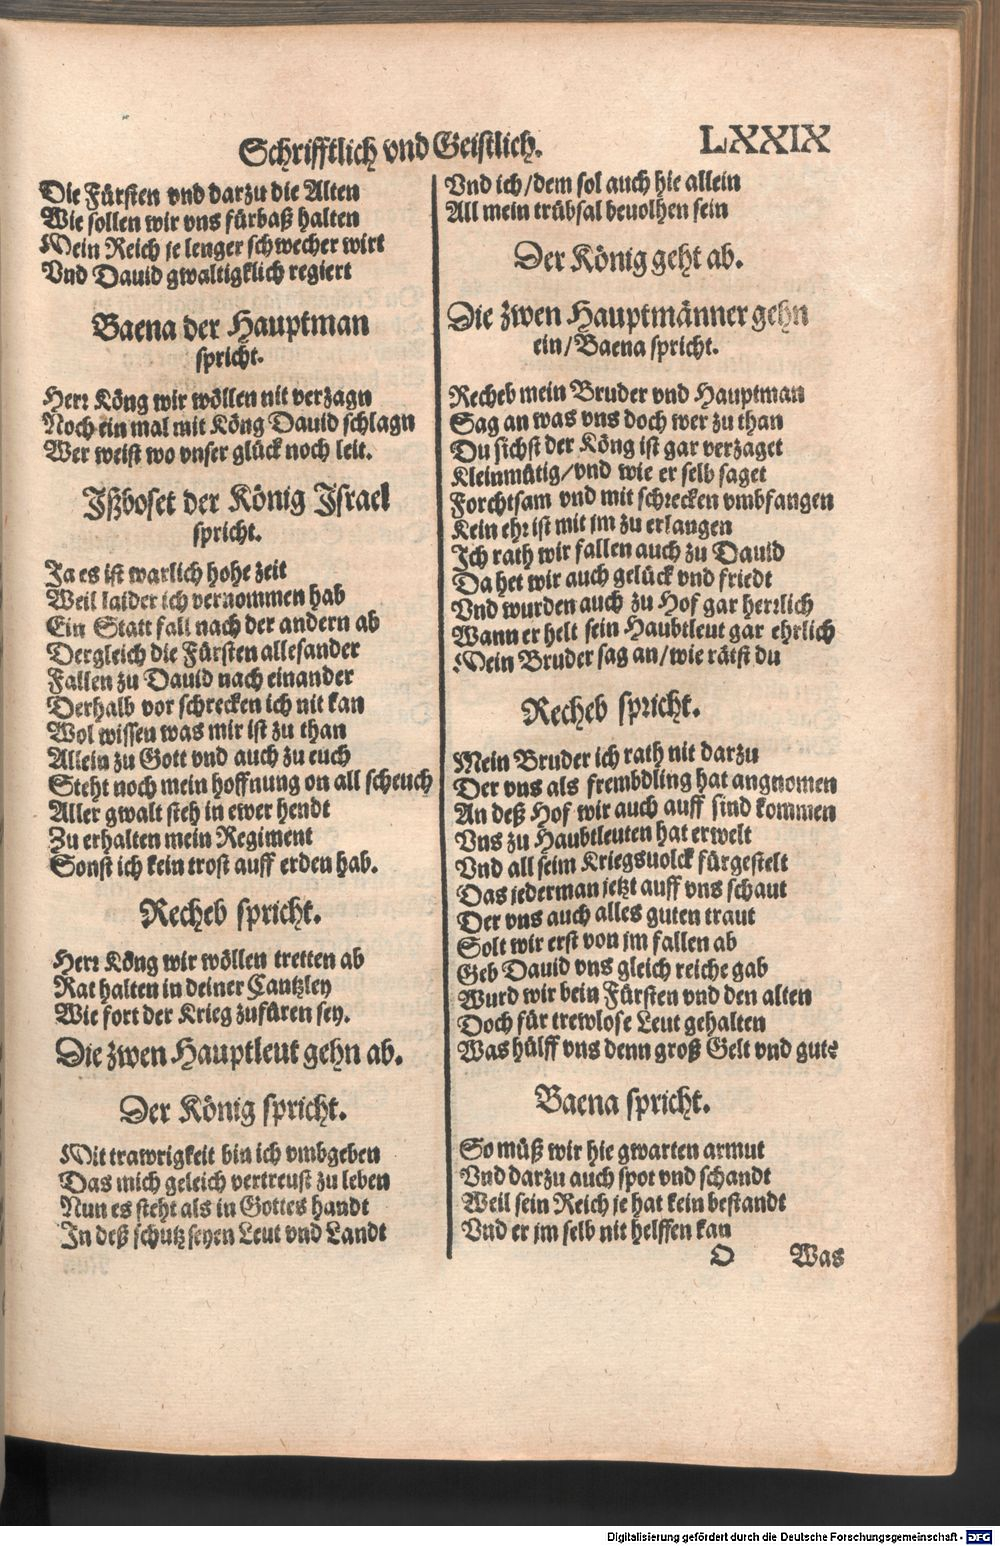 Schrifftlich vnd Geistlich.
LXXIX
Die Fürsten vnd darzu die Alten
Wie sollen wir vns fürbaß halten
Mein Reich je lenger schwecher wirt
Vnd Dauid gwaltigklich regiert
Baena der Hauptman
spricht.
Herr Köng wir wöllen nit verzagn
Noch ein mal mit Köng Dauid schlagn
Wer weist wo vnser glück noch leit.
Ißboset der König Israel
spricht.
Ja es ist warlich hohe zeit
Weil laider ich vernommen hab
Ein Statt fall nach der andern ab
Dergleich die Fürsten allesander
Fallen zu Dauid nach einander
Derhalb vor schrecken ich nit kan
Wol wissen was mir ist zu than
Allein zu Gott vnd auch zu euch
Steht noch mein hoffnung on all scheuch
Aller gwalt steh in ewer hendt
Zu erhalten mein Regiment
Sonst ich kein trost auff erden hab.
Recheb spricht.
Herr Köng wir wöllen tretten ab
Rat halten in deiner Cantzley
Wie fort der Krieg zufüren sey.
Die zwen Hauptleut gehn ab.
Der König spricht.
Mit trawrigkeit bin ich vmbgeben
Das mich geleich vertreust zu leben
Nun es steht als in Gottes handt
In deß schutz seyen Leut vnd Landt
Vnd ich/dem sol auch hie allein
All mein trübsal beuolhen sein
Der König geht ab.
Die zwen Hauptmänner gehn
ein/Baena spricht.
Recheb mein Bruder vnd Hauptman
Sag an was vns doch wer zu than
Du sichst der Köng ist gar verzaget
Kleinmütig/vnd wie er selb saget
Forchtsam vnd mit schrecken vmbfangen
Kein ehr ist mit jm zu erlangen
Ich rath wir fallen auch zu Dauid
Da het wir auch gelück vnd friedt
Vnd wurden auch zu Hof gar herrlich
Wann er helt sein Haubtleut gar ehrlich
Mein Bruder sag an/wie rätst du
Recheb spricht.
Mein Bruder ich rath nit darzu
Der vns als frembdling hat angnomen
An deß Hof wir auch auff sind kommen
Vns zu Haubtleuten hat erwelt
Vnd all seim Kriegsuolck fürgestelt
Das jederman jetzt auff vns schaut
Der vns auch alles guten traut
Solt wir erst von jm fallen ab
Geb Dauid vns gleich reiche gab
Wurd wir bein Fürsten vnd den alten
Doch für trewlose Leut gehalten
Was hülff vns denn groß Gelt vnd gute
Baena spricht.
So müß wir hie gwarten armut
Vnd darzu auch spot vnd schandt
Weil sein Reich je hat kein bestandt
Vnd er jm selb nit helffen kan
O Was
Digitalisierung gefördert durch die Deutsche Forschungsgemeinschaft - DFG